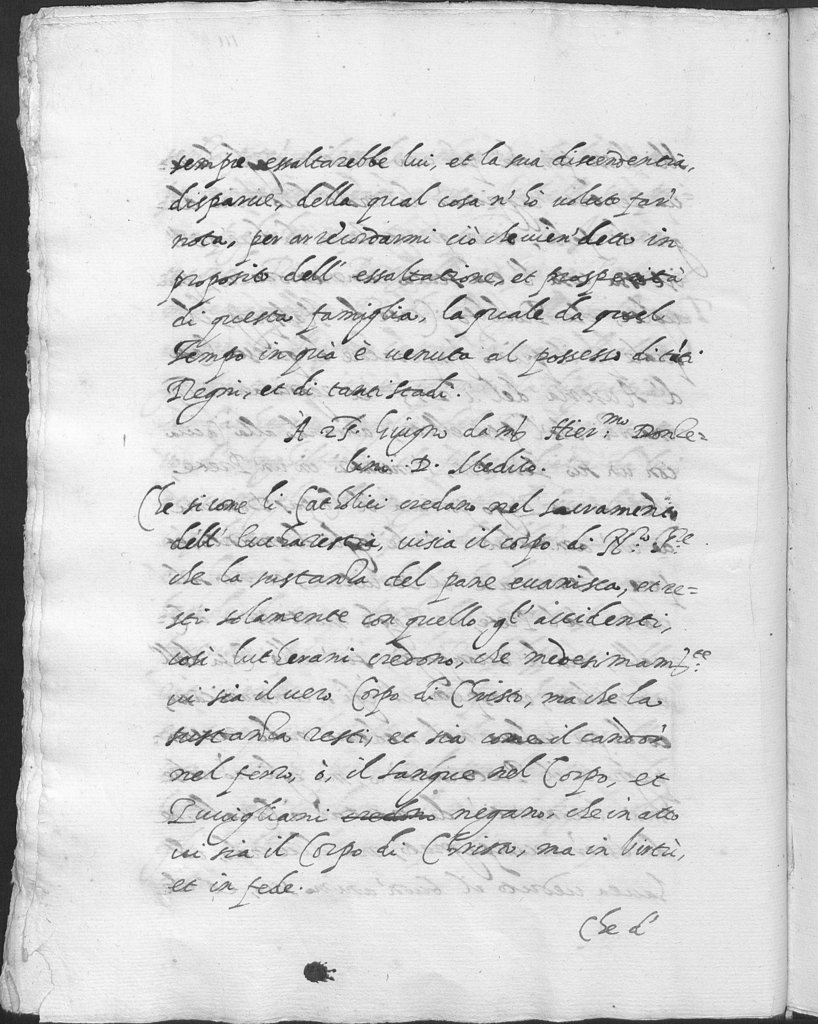 sempre essaltarebbe lui, et la sua discendentia,
disparue, della qual cosa n'hò voluto far
nota, per arrecordarmi ciò che vien detto in
proposito dell' essaltatione, et prosperità
di questa famiglia, la quale da quel
Tempo in quà è venuta al possesso di tãti
Regni, et di tanti stadi.
À 25. Giugno da mr Hier.mo
D. Medico.
Che si come li Catholici credano nel sacramento
dell' Eucharestia, vi sia il corpo di N.ro S.re
che la sustanza del pane evanisca, et re=
sti solamente con quello gl' accidenti,
così lutherani credono, che medesimam.te
vi sia il vero Corpo di Christo, ma che la
sustanza resti, et sia come il candor
nel ferro, ò, il sangue nel Corpo, et
Zuvigliani credono negano, che in atto
vi sia il Corpo di Christo, ma in virtù,
et in fede.
Che d'